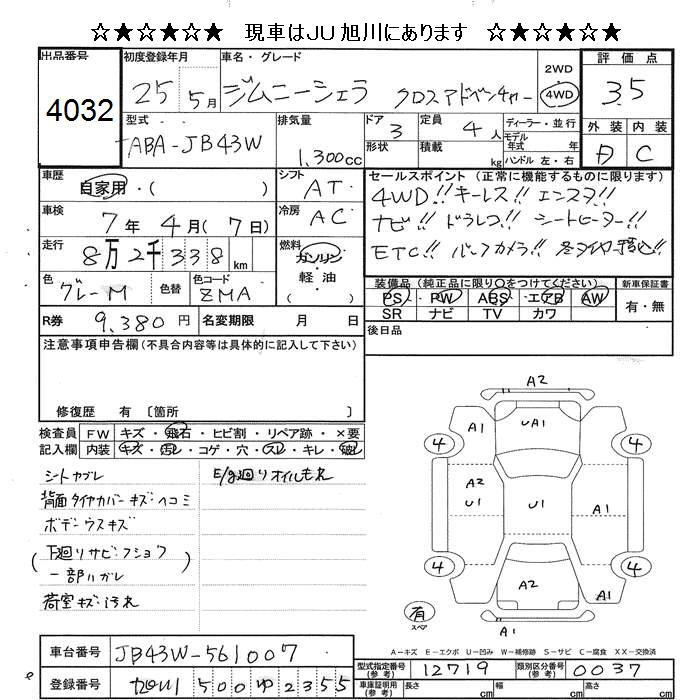 ☆★☆★☆★ 現車はJU旭川にあります ☆★☆★☆★
出品番号
4032
初度登録年月
25 5月
車名・グレード
ジムニーシエラ クロスアドベンチャー
2WD
4WD
評価点
3.5
型式
ABA-JB43W
排気量
1,300cc
ドア
3
形状
定員
4人
積載
kg
ディーラー・並行
モデル
年式 年式
ハンドル 左・右
外装
内装
C
車歴
自家用・( )
シフト
AT
車検
7年4月(7日)
冷房
AC
走行
8万2千338km
燃料
ガソリン
軽・油
( )
色
グレーM
色替
色コード
ZMA
R券
9,380円
名変期限 月 日
セールスポイント(正常に機能するものに限ります)
4WD!! キーレス!! エンスタ!!
ナビ!! ドラレコ!! シートヒーター!!
ETC!! バックカメラ!! 冬タイヤ積込!!
装備品(純正品に限り○をつけてください)
新車保証書
PS PW ABS エアB AW
SR ナビ TV カワ
有・無
後日品
注意事項申告欄(不具合内容等は具体的に記入して下さい)
修復歴 有〔箇所 〕
検査員
記入欄
FW キズ・飛石・ヒビ割・リペア跡・×要
内装 キズ・汚レ・コゲ・穴・スレ・キレ・破レ
シートカブレ
E/g廻りオイルモレ
背面タイヤカバーキズ・ヘコミ
ボデーウスキズ
(下廻りサビ・フショク
一部ハガレ)
荷室キズ・汚れ
A2
A1
UA1
4
4
A2
U1
U1
A1
4
4
A2
A1
有
スペア
A1
A-キズ E-エクボ U-凹み W-補修跡 S-サビ C-腐食 XX-交換済
車台番号
JB43W-561007
登録番号
旭川 500 ゆ 2355
型式指定番号
(参考)
12719
類別区分番号
(参考)
0037
車庫証明用
(参考)
長さ
cm
幅
cm
高さ
cm